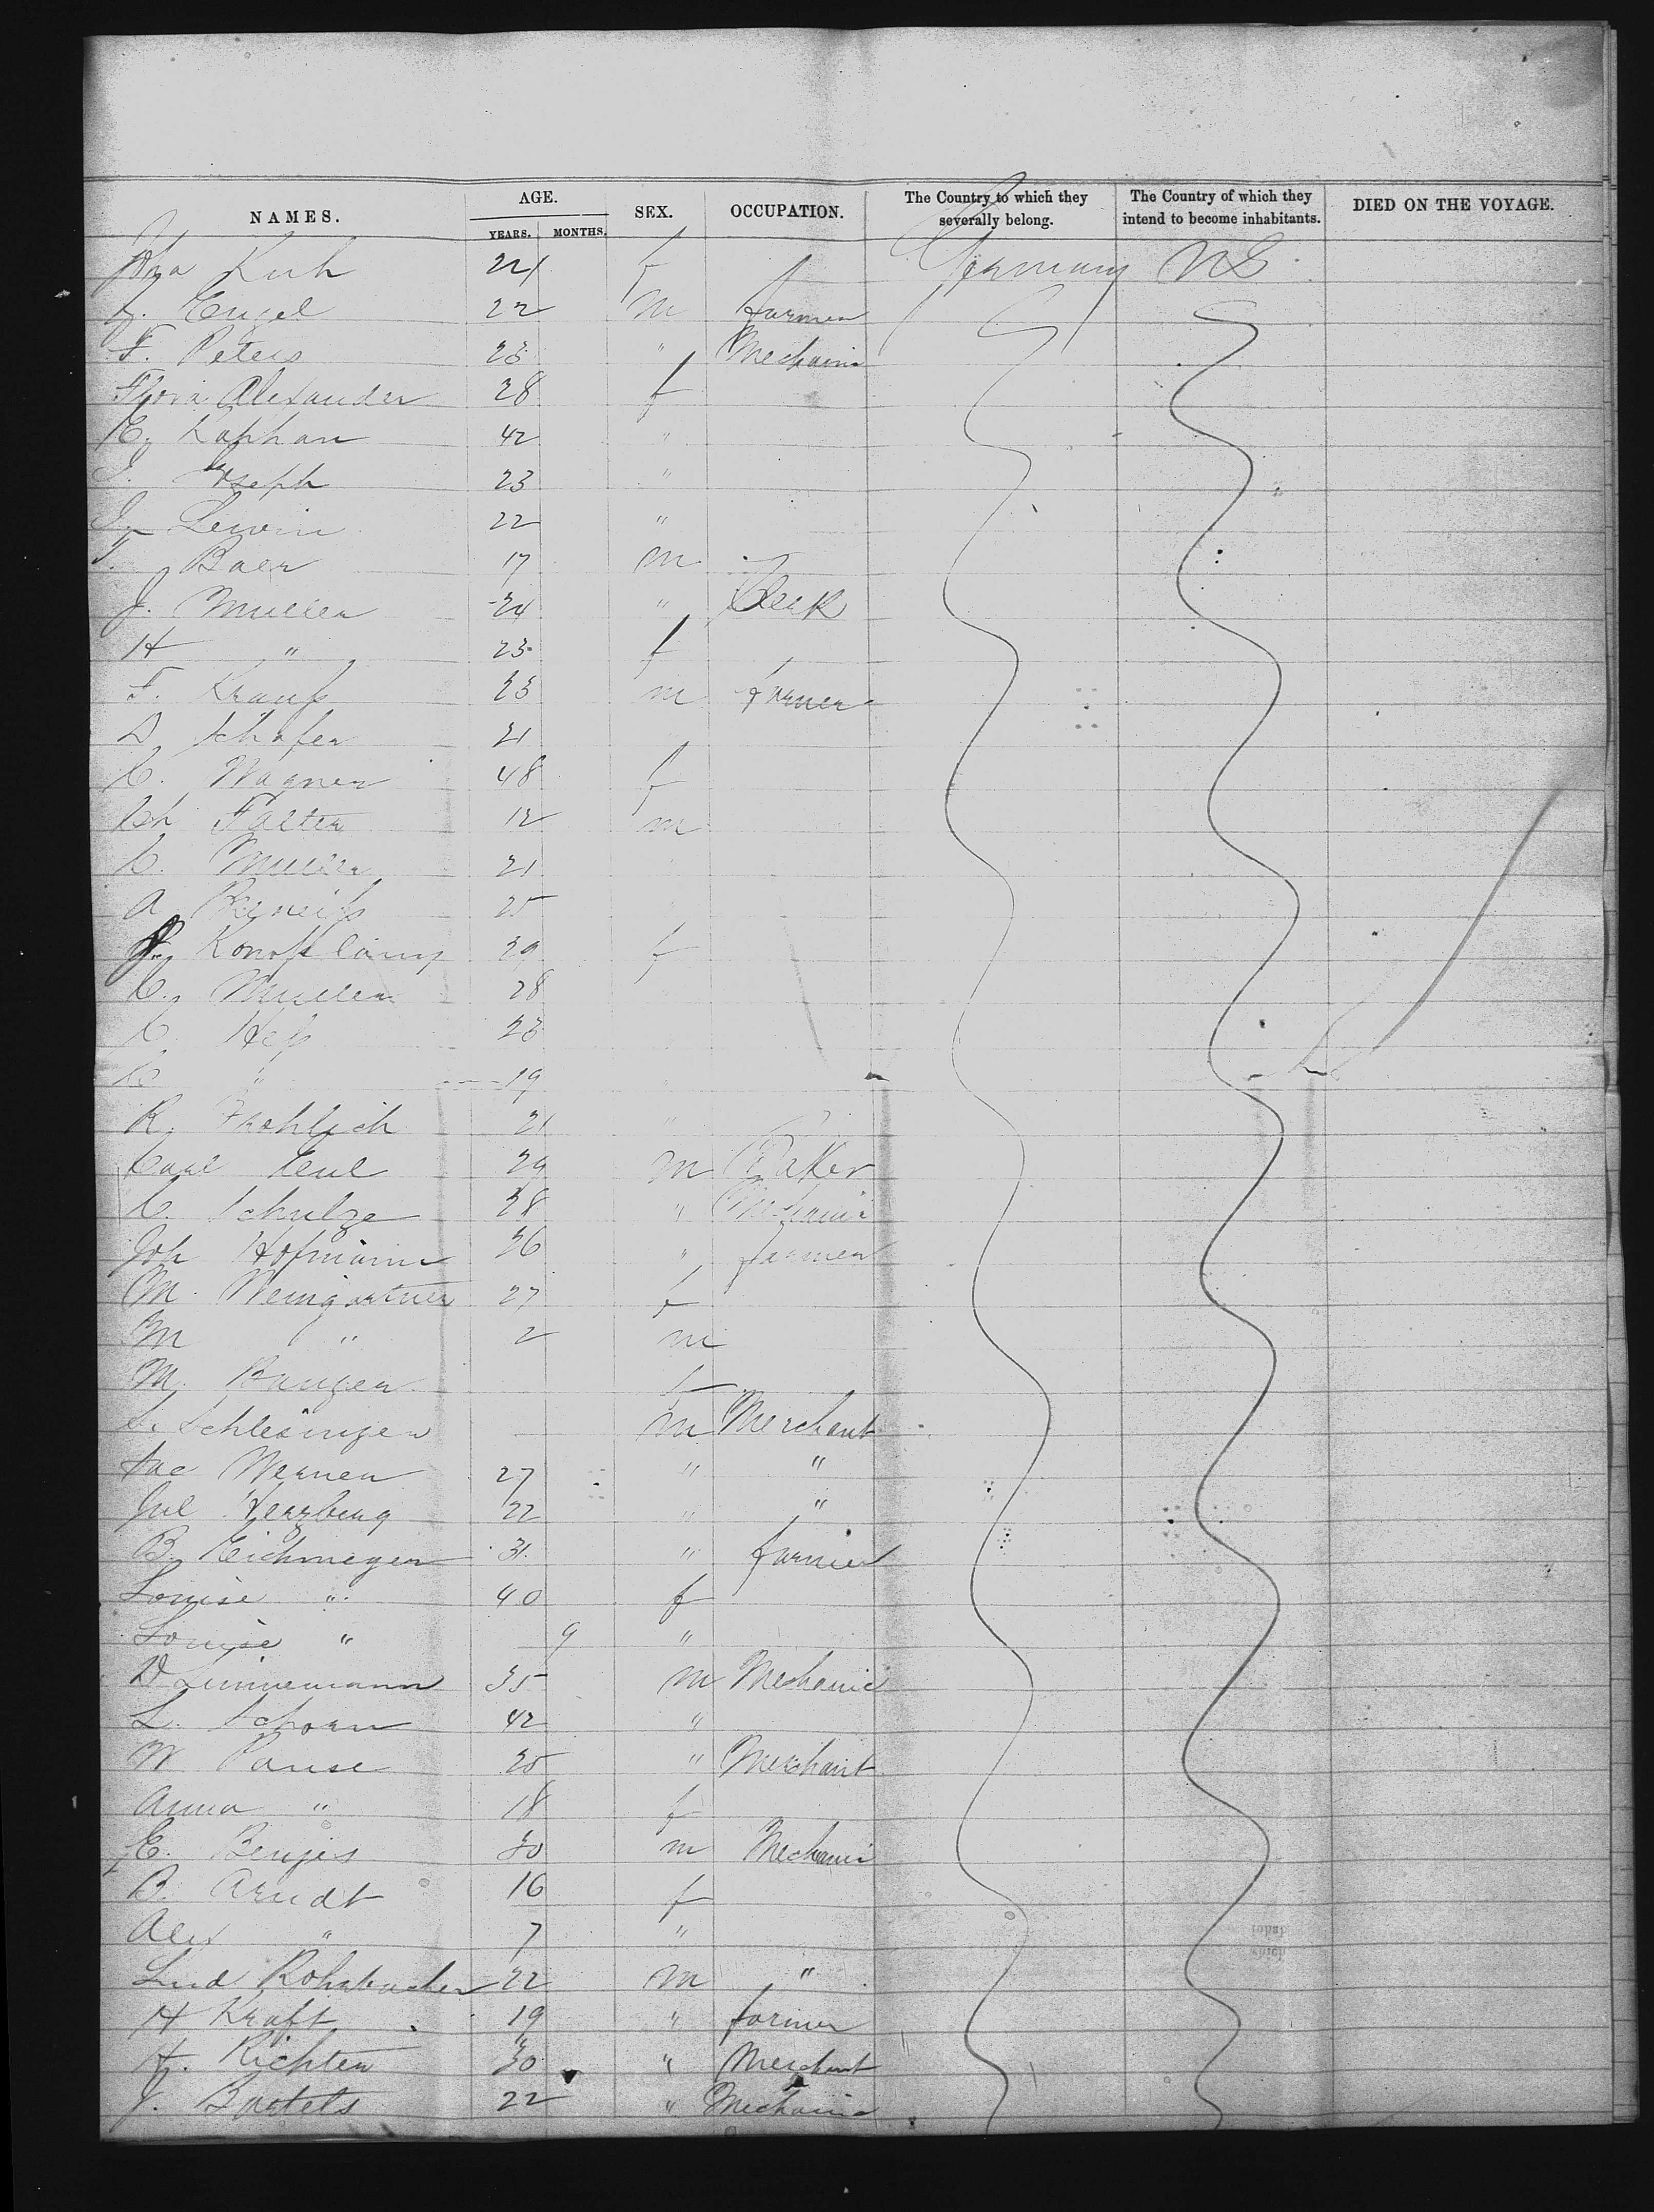 NAMES. AGE. YEARS. MONTHS. SEX. OCCUPATION. The Country to which they severally belong. The Country of which they intend to become inhabitants. DIED ON THE VOYAGE.
Kuh 24 f Germany U S
Engel 22 m farmer
F. Peters 23 " Mechanic
Flora Alexander 28 f
E. Kaphan 42 "
Joseph 23 "
Lewin 22 "
Baer 17 m
J. Muller 24 " Clerk
H " 23 f
F. Krauß 23 m farmer
D Schafer 21
C. Wagner 48 f
Falter 12 m
C. Muller 21
A 25
29 f
C. Muller 28
C. Heß 23
C " 19
R. Frohlich 21 "
Carl Keul 29 m Baker
C. Schulze 28 " Mechanic
Joh Hofmann 26 " farmer
M. Weingartner 27 f
M " 2 m
M. f
S. Schlesinger m Merchant
Jac Werner 27 " "
Jul Herzberg 22 " "
B. Eichmeyer 31 " farmer
Louise " 40 f
Louise " 9 "
D Linnemann 35 m Mechanic
L. Schorn 42 "
W Pause 25 " Merchant
Anna " 18 f
E. Benjes 30 m Mechanic
B. Arndt 16 f
Alex " 7 "
Lud Rohrbacher 22 m "
H Kraft 19 " farmer
H. Richter 30 " Merchant
J. Bartels 22 " Mechanic